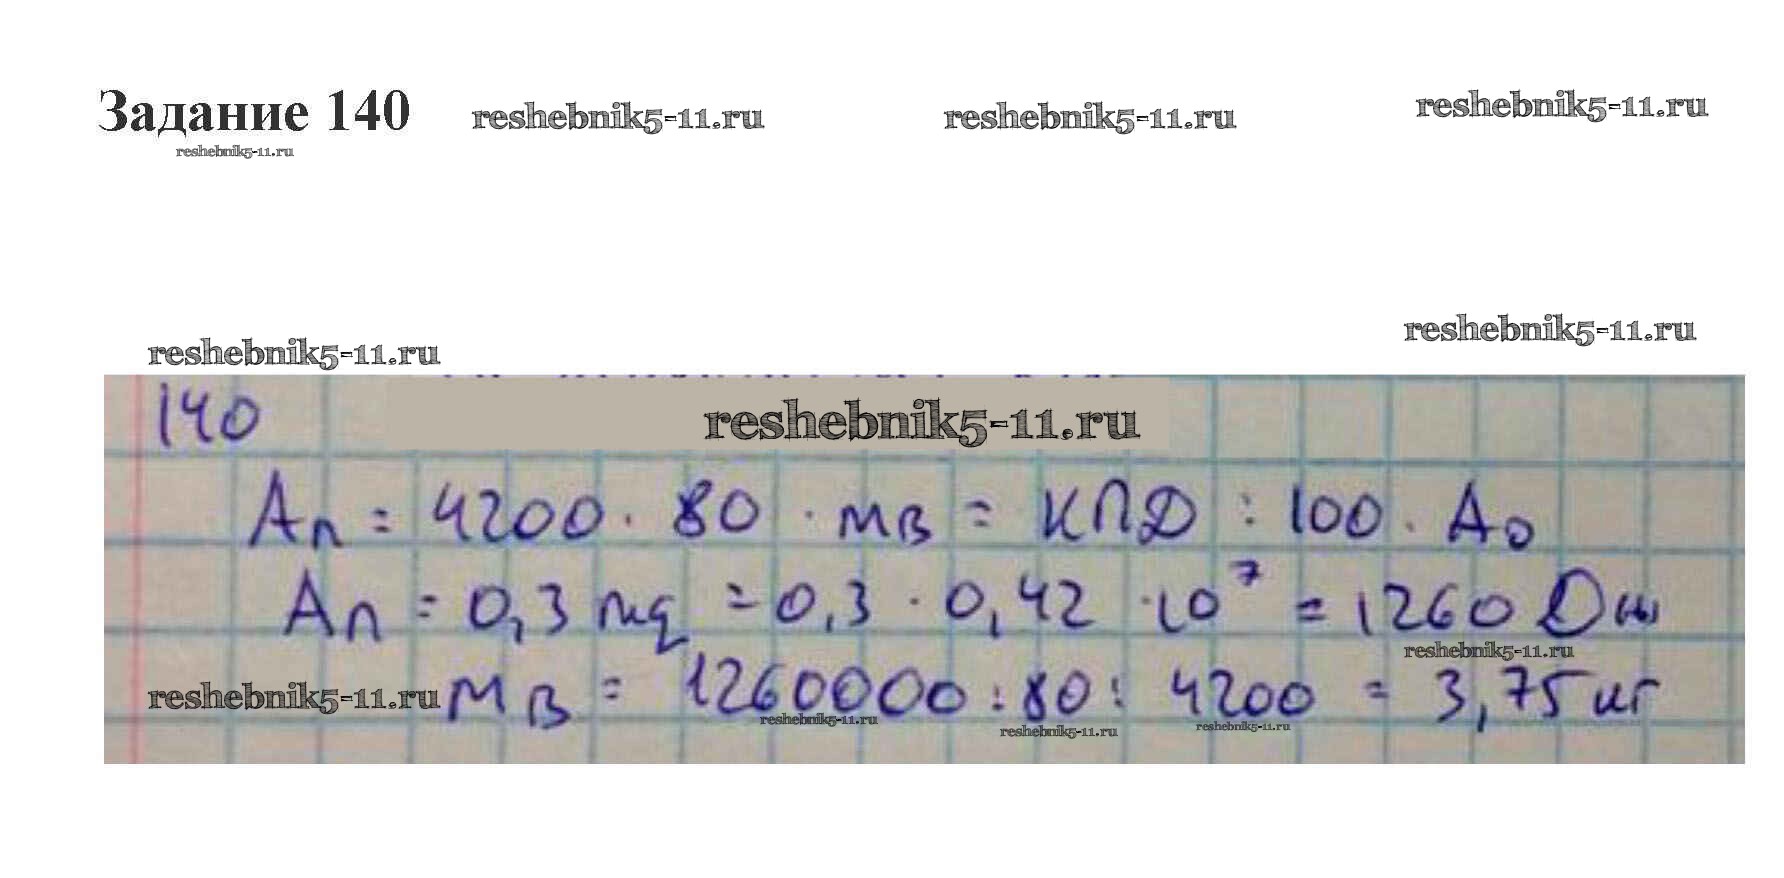 Задание 140 reshebnik5-11.ru reshebnik5-11.ru reshebnik5-11.ru
reshebnik5-11.ru
reshebnik5-11.ru reshebnik5-11.ru
140 reshebnik5-11.ru
Aп = 4200 · 80 · mв = КПД : 100 · Ao
Aп = 0,3 mq = 0,3 · 0,42 · 10⁷ = 1260 Дж
reshebnik5-11.ru
reshebnik5-11.ru mв = 1260000 : 80 : 4200 = 3,75 кг
reshebnik5-11.ru reshebnik5-11.ru reshebnik5-11.ru